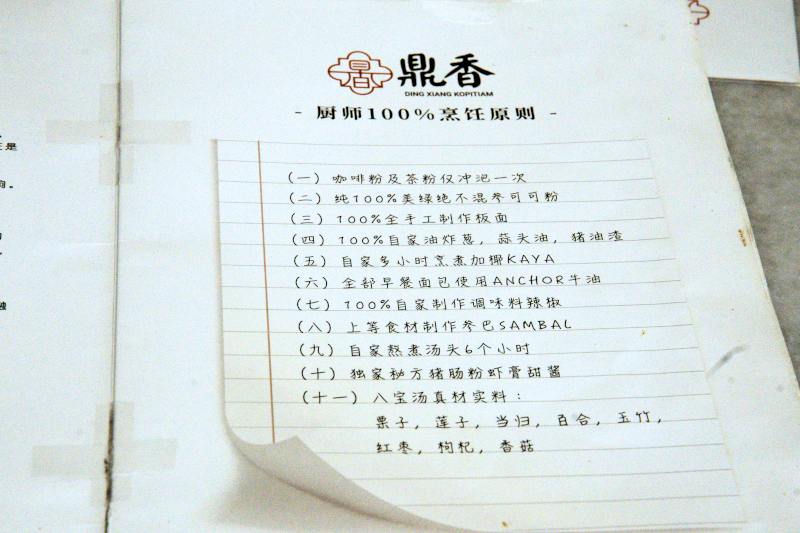 鼎香
DING XIANG KOPITIAM
- 厨师100%烹饪原则 -
(一) 咖啡粉及茶粉仅冲泡一次
(二) 纯100%美绿绝不混参可可粉
(三) 100%全手工制作板面
(四) 100%自家油炸葱, 蒜头油, 猪油渣
(五) 自家多小时烹煮加椰KAYA
(六) 全部早餐面包使用ANCHOR牛油
(七) 100%自家制作调味料辣椒
(八) 上等食材制作参巴SAMBAL
(九) 自家熬煮汤头6个小时
(十) 独家秘方猪肠粉虾膏甜酱
(十一) 八宝汤真材实料:
栗子, 莲子, 当归, 百合, 玉竹,
红枣, 枸杞, 香菇